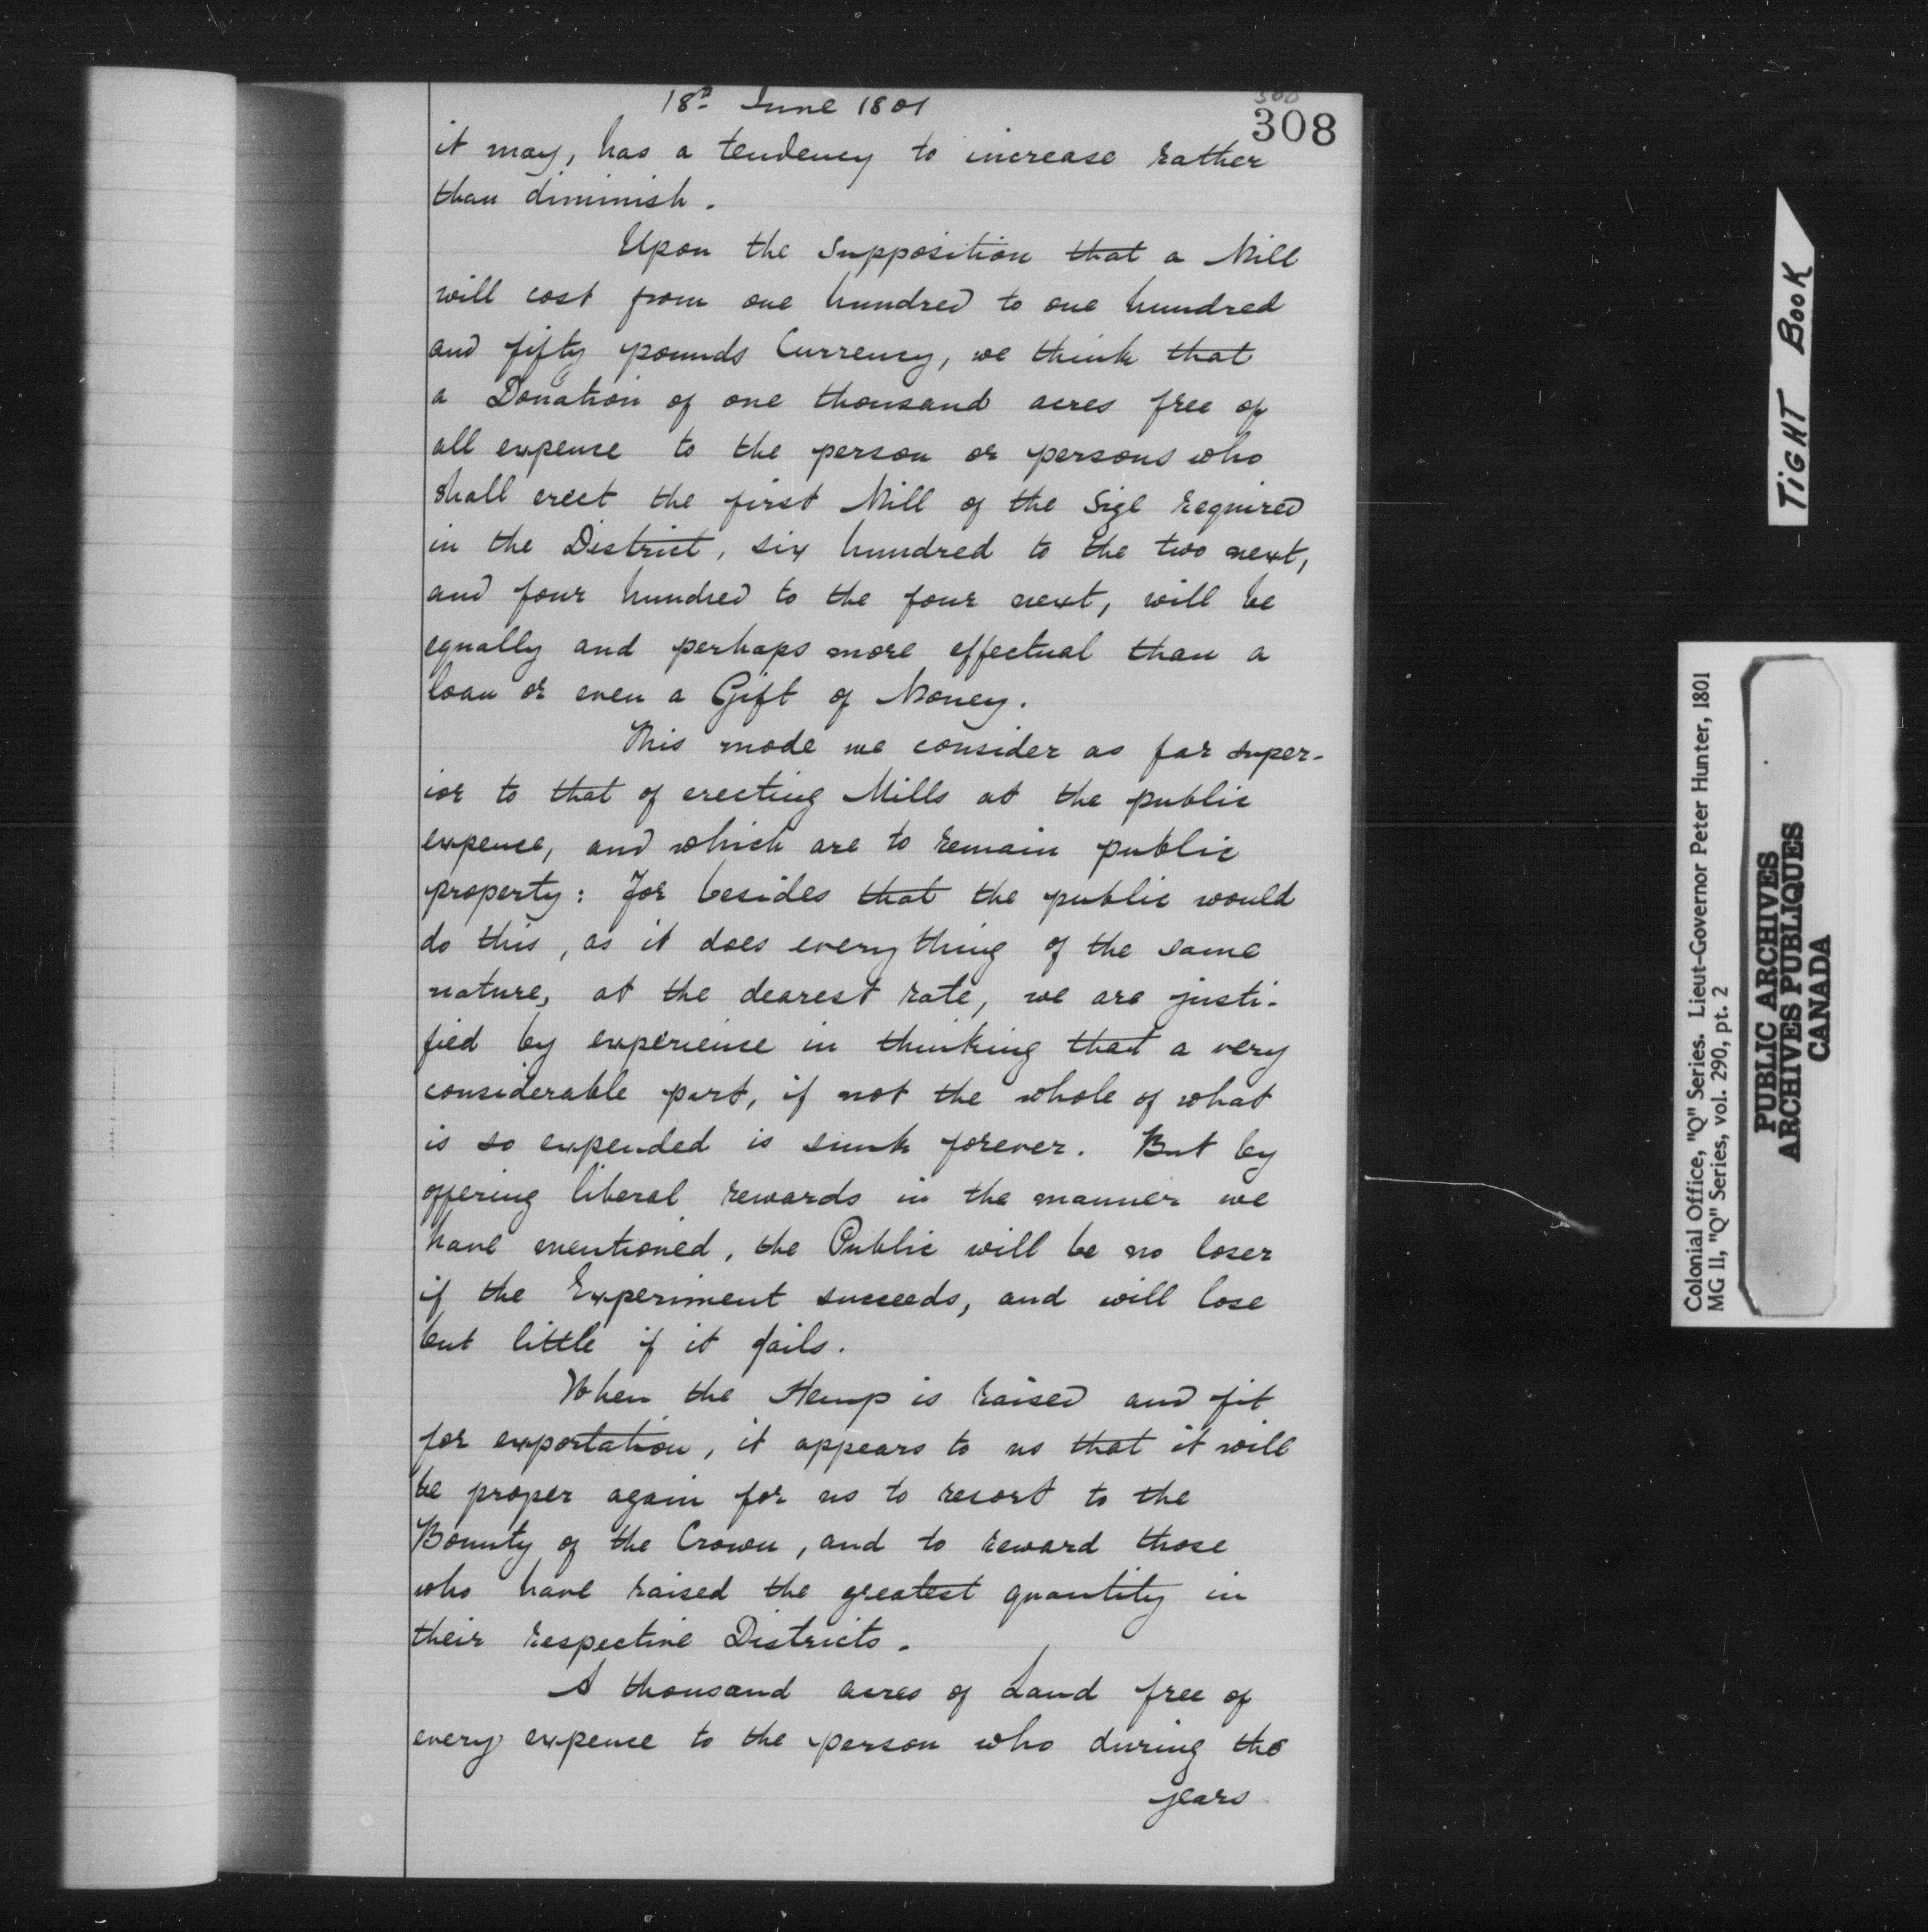 18th June 1801
308
it may, has a tendency to increase rather
than diminish.
Upon the Supposition that a Mill
will cost from one hundred to one hundred
and fifty pounds Currency, we think that
a Donation of one thousand acres free of
all expense to the person or persons who
shall erect the first Mill of the Size required
in the District, six hundred to the two next,
and four hundred to the four next, will be
equally and perhaps more effectual than a
loan or even a Gift of Money.
This mode we consider as far super-
ior to that of erecting Mills at the public
expence, and which are to remain public
property: For besides that the public would
do this, as it does every thing of the same
nature, at the dearest rate, we are justi-
fied by experience in thinking that a very
considerable part, if not the whole of what
is so expended is sunk forever. But by
offering liberal rewards in the manner we
have mentioned, the Public will be no loser
if the Experiment succeeds, and will lose
but little if it fails.
When the Hemp is raised and fit
for exportation, it appears to us that it will
be proper again for us to resort to the
Bounty of the Crown, and to reward those
who have raised the greatest quantity in
their respective Districts.
A thousand acres of Land free of
every expence to the person who during the
years
TIGHT BOOK
Colonial Office, "Q" Series. Lieut-Governor Peter Hunter, 1801
MG 11, "Q" Series, vol. 290, pt. 2
PUBLIC ARCHIVES
ARCHIVES PUBLIQUES
CANADA